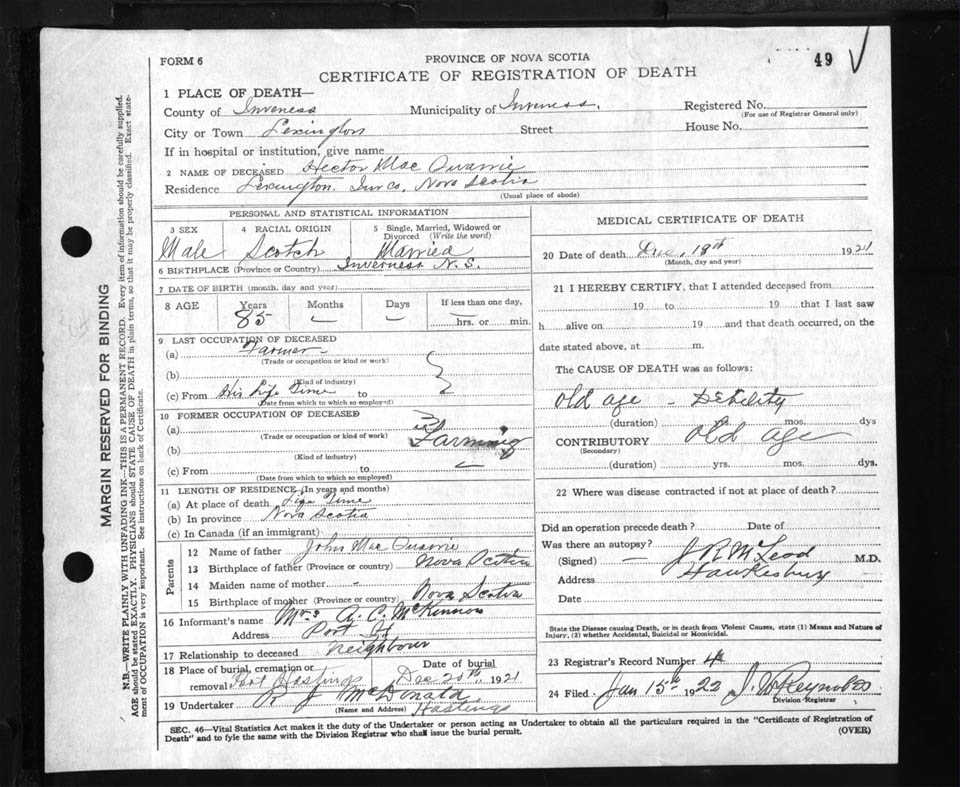 FORM 6
PROVINCE OF NOVA SCOTIA
49
CERTIFICATE OF REGISTRATION OF DEATH
1 PLACE OF DEATH—
County of Inverness Municipality of Inverness. Registered No.
(For use of Registrar General only)
City or Town Lexington Street House No.
If in hospital or institution, give name
2 NAME OF DECEASED Hector Mac Quarrie
Residence Lexington. Inv Co, Nova Scotia
(Usual place of abode)
PERSONAL AND STATISTICAL INFORMATION
3 SEX 4 RACIAL ORIGIN 5 Single, Married, Widowed or Divorced (Write the word)
Male Scotch Married
6 BIRTHPLACE (Province or Country) Inverness N. S.
7 DATE OF BIRTH (month, day and year)
8 AGE Years Months Days If less than one day,
85 — — hrs. or min.
9 LAST OCCUPATION OF DECEASED
(a) Farmer
(Trade or occupation or kind or work)
(b)
(Kind of industry)
(c) From His Life Time to
(Date from which to which so employed)
10 FORMER OCCUPATION OF DECEASED
(a)
(Trade or occupation or kind of work)
(b) Farming
(Kind of industry)
(c) From to
(Date from which to which so employed)
11 LENGTH OF RESIDENCE (In years and months)
(a) At place of death Life Time
(b) In province Nova Scotia
(c) In Canada (if an immigrant)
Parents
12 Name of father John Mac Quarrie
13 Birthplace of father (Province or country) Nova Scotia
14 Maiden name of mother -
15 Birthplace of mother (Province or country) Nova Scotia
16 Informant's name Mrs A. C. McKinnon
Address Port
17 Relationship to deceased Neighbour
18 Place of burial, cremation or removal Port Hastings Date of burial Dec 20th, 1921
19 Undertaker R J McDonald
(Name and Address) Hastings
MEDICAL CERTIFICATE OF DEATH
20 Date of death Dec, 18th 1921
(Month, day and year)
21 I HEREBY CERTIFY, that I attended deceased from
19 to 19 that I last saw
h alive on 19 and that death occurred, on
date stated above, at m.
The CAUSE OF DEATH was as follows:
Old age - Debility
(duration) yrs. mos. dys
CONTRIBUTORY Old age
(Secondary)
(duration) yrs. mos. dys.
22 Where was disease contracted if not at place of death?
Did an operation precede death? Date of
Was there an autopsy?
(Signed) — J R McLeod M.D.
Address Hawkesbury
Date
State the Disease causing Death, or in death from Violent Causes, state (1) Means and Nature of
Injury, (2) whether Accidental, Suicidal or Homicidal.
23 Registrar's Record Number 4
24 Filed Jan 15th 1922 J. W Reynolds
Division Registrar
SEC. 46—Vital Statistics Act makes it the duty of the Undertaker or person acting as Undertaker to obtain all the particulars required in the "Certificate of Registration of
Death" and to fyle the same with the Division Registrar who shall issue the burial permit.
(OVER)
MARGIN RESERVED FOR BINDING
N.B.—WRITE PLAINLY WITH UNFADING INK—THIS IS A PERMANENT RECORD. Every item of information should be carefully supplied.
AGE should be stated EXACTLY. PHYSICIANS should STATE CAUSE OF DEATH in plain terms, so that it may be properly classified. Exact state-
ment of OCCUPATION is very important. See instructions on back of Certificate.